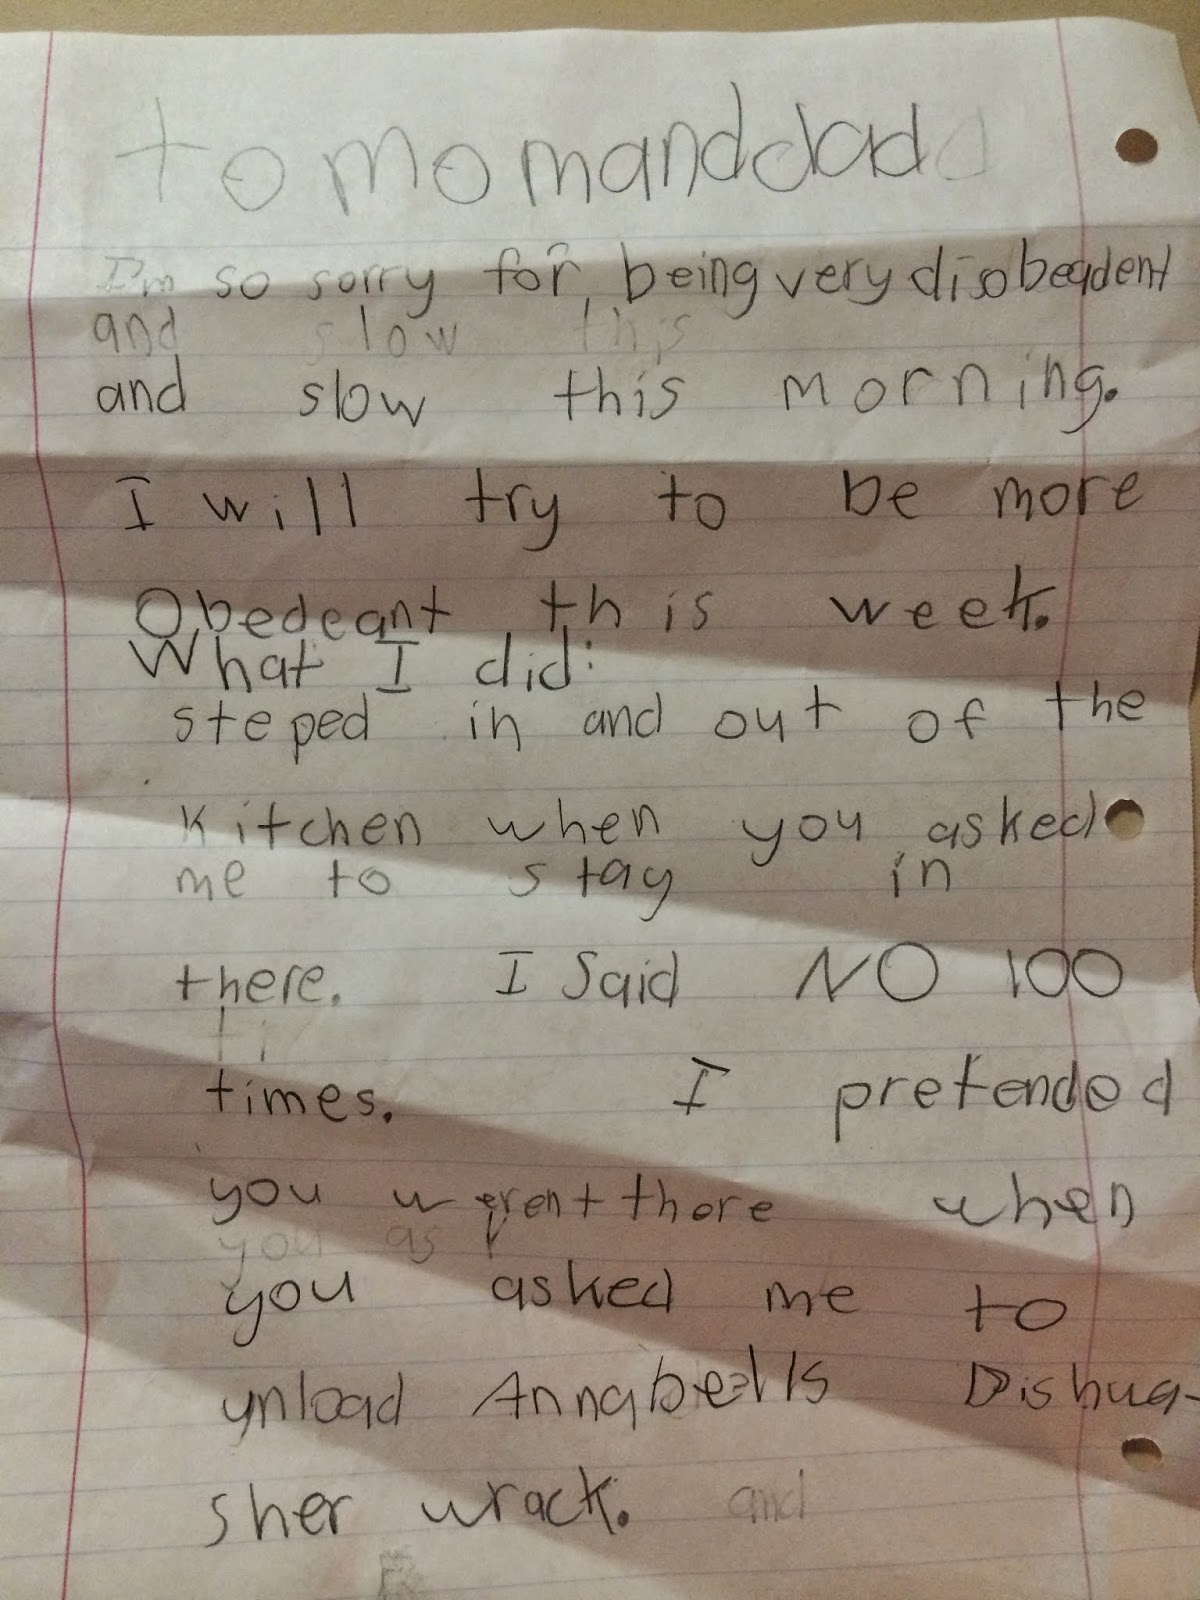 to mom and dad
I'm so sorry for being very disobeadent
and slow this
and slow this morning.
I will try to be more
Obedeant this week.
What I did:
steped in and out of the
kitchen when you asked
me to stay in
there. I Said NO 100
ti
times. I pretended
you werent there when
you as
you asked me to
unload Annabells Dishwa-
sher wrack. and